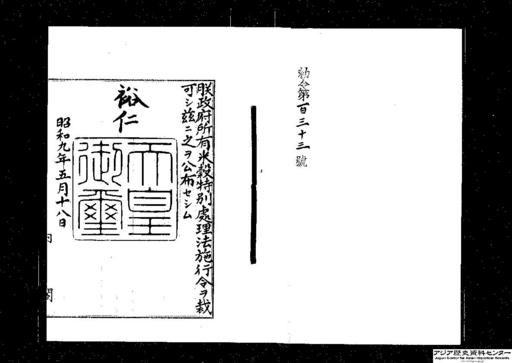 勅令第百三十三號
朕政府所有米穀特別處理法施行令ヲ裁
可シ茲ニ之ヲ公布セシム
裕仁
天皇
御璽
昭和九年五月十八日
内閣
アジア歴史資料センター
Japan Center for Asian Historical Records